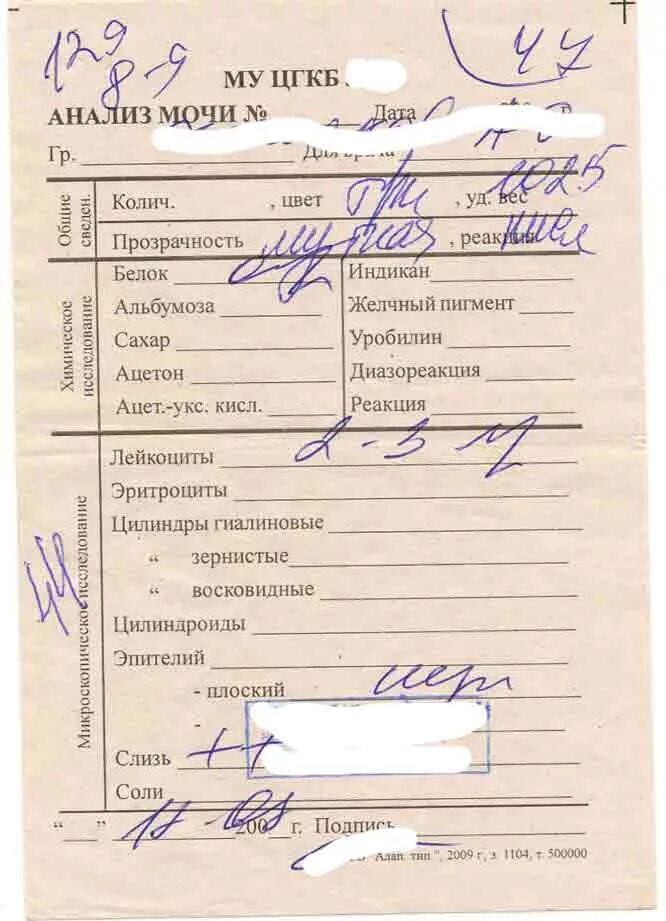 129
8-9
47
МУ ЦГКБ
АНАЛИЗ МОЧИ № Дата
Гр. Для врача
Общие сведен.
Колич. , цвет , уд. вес 1025
Прозрачность мутная , реакция
Химическое исследование
Белок Индикан
Альбумоза Желчный пигмент
Сахар Уробилин
Ацетон Диазореакция
Ацет.-укс. кисл. Реакция
Микроскопическое исследование
Лейкоциты 2-3
Эритроциты
Цилиндры гиалиновые
“ зернистые
“ восковидные
Цилиндроиды
Эпителий
- плоский
-
Слизь ++
Соли
“ ” 200 г. Подпись
Алап. тип ", 2009 г, з. 1104, т. 500000